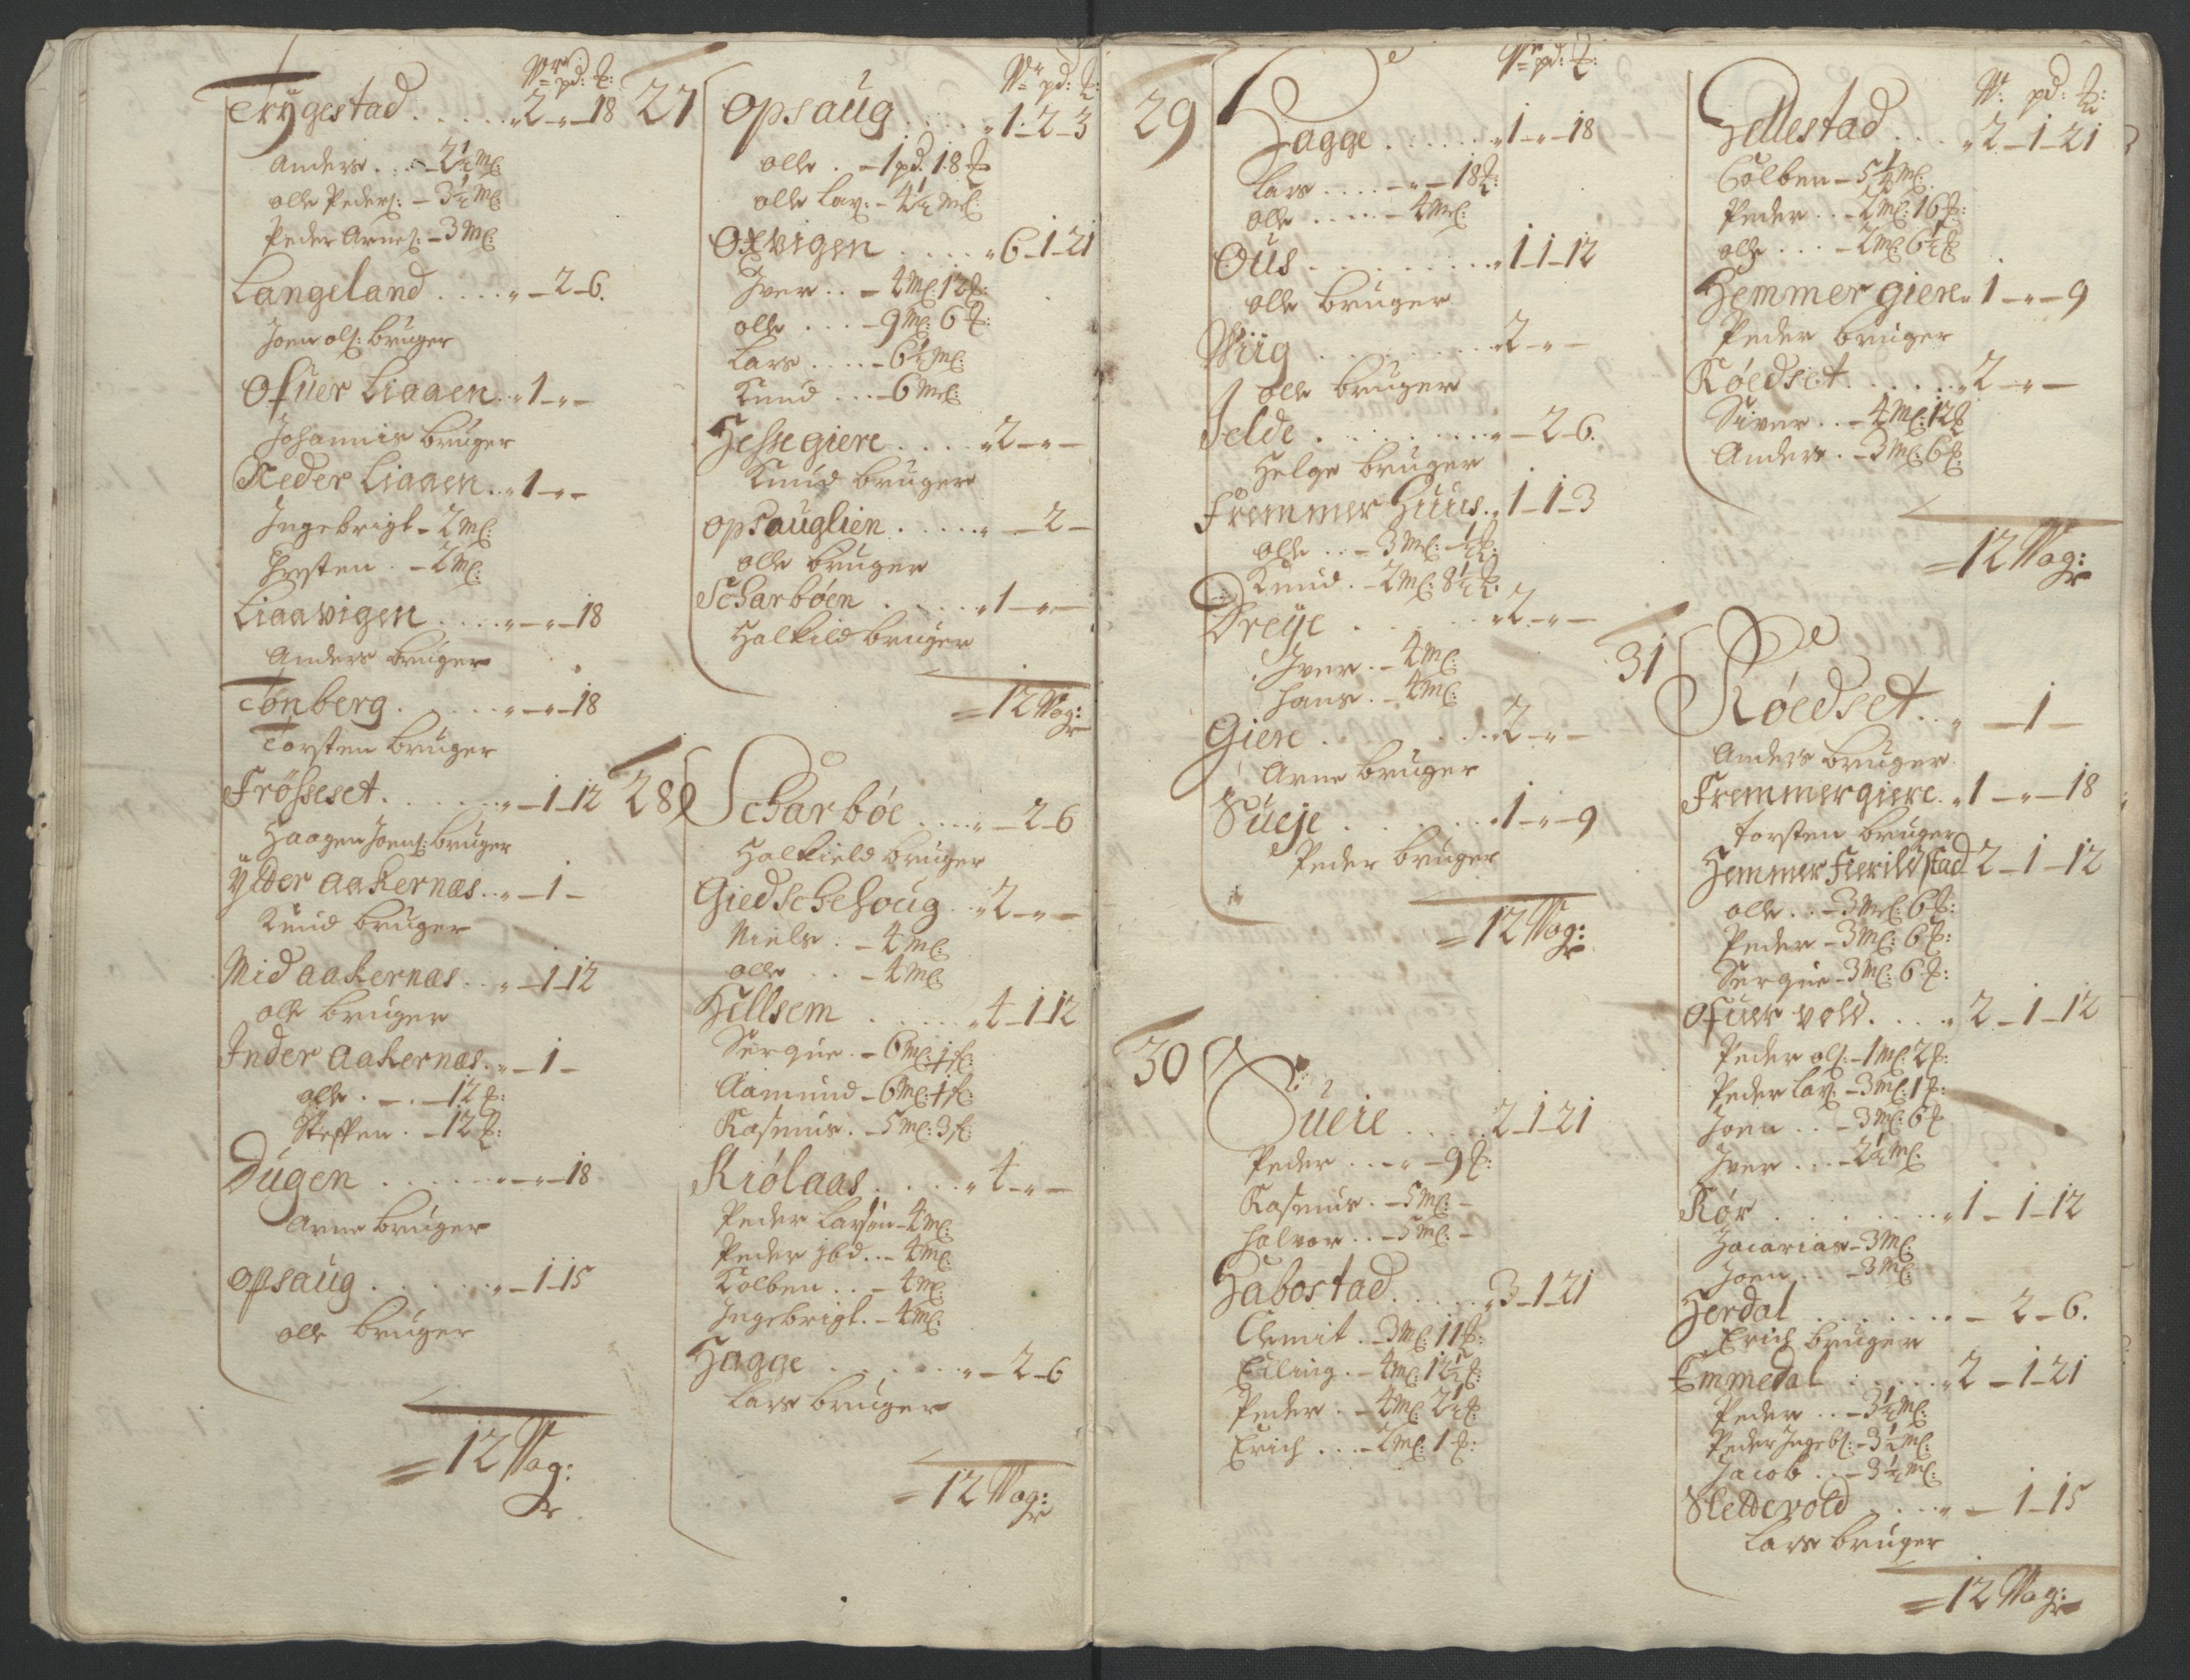 W: pd: ℔:
Trygestad . . . . . „ 2 – „ – 18
Anders . . . – 2½ ml:
olle Peders: – 3½ ml:
Peder Arnes: – 3 ml:
Langeland . . . . „ – 2 – 6.
Joen ols: bruger
Ofuer Liaaen . . „ 1 – „ –
Johannis bruger
Neder Liaaen . . „ 1 – „ –
Ingebrigt – 2 ml:
Thosten . – 2 ml:
Liaavigen . . . . „ – „ – 18
Anders bruger
Tonberg . . . . . „ – „ – 18
Torsten bruger
Frösseset . . . . . . „ – 1 – 12
Haagen Joens: bruger
Ytter aakernæs . . „ – 1 –
Knud bruger
Mid aakernæs . . „ – 1 – 12
olle bruger
Inder aakernæs . „ – 1 –
olle . – . – 12 ℔:
Steffen . – 12 ℔:
Dugen . . . . . . „ – „ – 18
Arne bruger
opsaug . . . . . . „ – 1 – 15
olle bruger
= 12 Wog:
W: pd: ℔:
27 opsaug . . . . „ 1 – 2 – 3
olle . – 1 pd. 18 ℔
olle Lar: – 4½ ml:
Oxvigen . . . . . „ 6 – 1 – 21
Iver . . – 4 ml: 12 ℔:
olle . . . – 9 ml: 6 ℔:
Lars . . . . – 6½ ml:
Knud . . . – 6 ml:
Hessegiere . . . . „ 2 – „ –
Knud bruger
opsauglien . . . . . „ – 2 –
olle bruger
Scharbøen . . . . . „ 1 – „ –
Halkild bruger
= 12 Wog:
28 Scharbøe . . . . „ – 2 – 6
Halkield bruger
Giedschehoug . . „ 2 – „ –
Niels . – 4 ml:
olle . . – 4 ml:
Hellsem . . . . . „ 4 – 1 – 12
Serque . – 6 ml:
Aamund – 6 ml:
Rasmus . – 5 ml: 3
Kiölaas . . . . „ 4 – „ –
Peder Larsen – 4 ml:
Peder ibd . . – 4 ml:
Kolben . . – 4 ml:
Ingebrigt . – 4 ml:
Hagge . . . . . . „ – 2 – 6
Lars bruger
= 12 Wog:
W: pd: ℔:
29 Hagge . . . . . . „ 1 – „ – 18
Lars . . . . – „ – 18 ℔:
olle . . . . . – 4 ml:
Ous . . . . . . . . . „ 1 – 1 – 12
olle bruger
Wiig . . . . . . . . „ 2 – „ –
olle bruger
Selde . . . . . . . . „ – 2 – 6.
Helge bruger
Fremmer Huus . „ 1 – 1 – 3
olle . . – 3 ml: – ½ ℔:
Knud . – 2 ml: 8½ ℔:
Dreye . . . . . . „ 2 – „ –
Iver . – 4 ml:
Hans . – 4 ml:
Giere . . . . . . „ 2 – „ –
Arne bruger
Sueje . . . . . . . „ 1 – „ – 9
Peder bruger
= 12 Wog:
30 Sueie . . . . . 2 – 1 – 21
Peder . . – „ – 9 ℔:
Rasmus . – 5 ml: –
Halvor . . – 5 ml: –
Habostad . . . . . „ 3 – 1 – 21
Clemit . – 3 ml: 11 ℔:
Elling . – 4 ml: 12½ ℔:
Peder . – 4 ml: 2½ ℔:
Erich . . . – 2 ml: 1 ℔:
W: pd: ℔:
Hellestad . . . . „ 2 – 1 – 21
Colben – 5½ ml:
Peder . . – 2 ml: 16 ℔:
olle . . . – 2 ml: 6½ ℔
Hemmer giere „ 1 – „ – 9
Peder bruger
Røedset . . . . . . „ 2 – „ –
Siver . . – 4 ml: 12 ℔
Anders . – 3 ml: 6 ℔:
= 12 Wog:
31 Røedset . . „ – 1 –
Anders bruger
Fremmergiere . „ 1 – „ – 18
Torsten bruger
Hemmer Fierildstad 2 – 1 – 12
olle . . – 3 ml: 6 ℔:
Peder – 3 ml: 6 ℔:
Serque – 3 ml: 6 ℔:
Ofuer vold . . . . „ 2 – 1 – 12
Peder ols: – 1 ml: 2 ℔:
Peder Lar: – 3 ml: 1 ℔:
Joen . . – 3 ml: 6 ℔
Iver . . . – 2½ ml:
Rør . . . . . . . „ 1 – 1 – 12
Zacarias – 3 ml:
Joen . . – 3 ml:
Herdal . . . . . . . „ – 2 – 6.
Erich bruger
Emmedal . . . . . „ 2 – 1 – 21
Peder . . – 3½ ml:
Peder Ingeb: – 3½ ml:
Jacob . . – 3½ ml:
Slettevold . . . . „ – 1 – 15
Lars bruger
= 12 Wog: